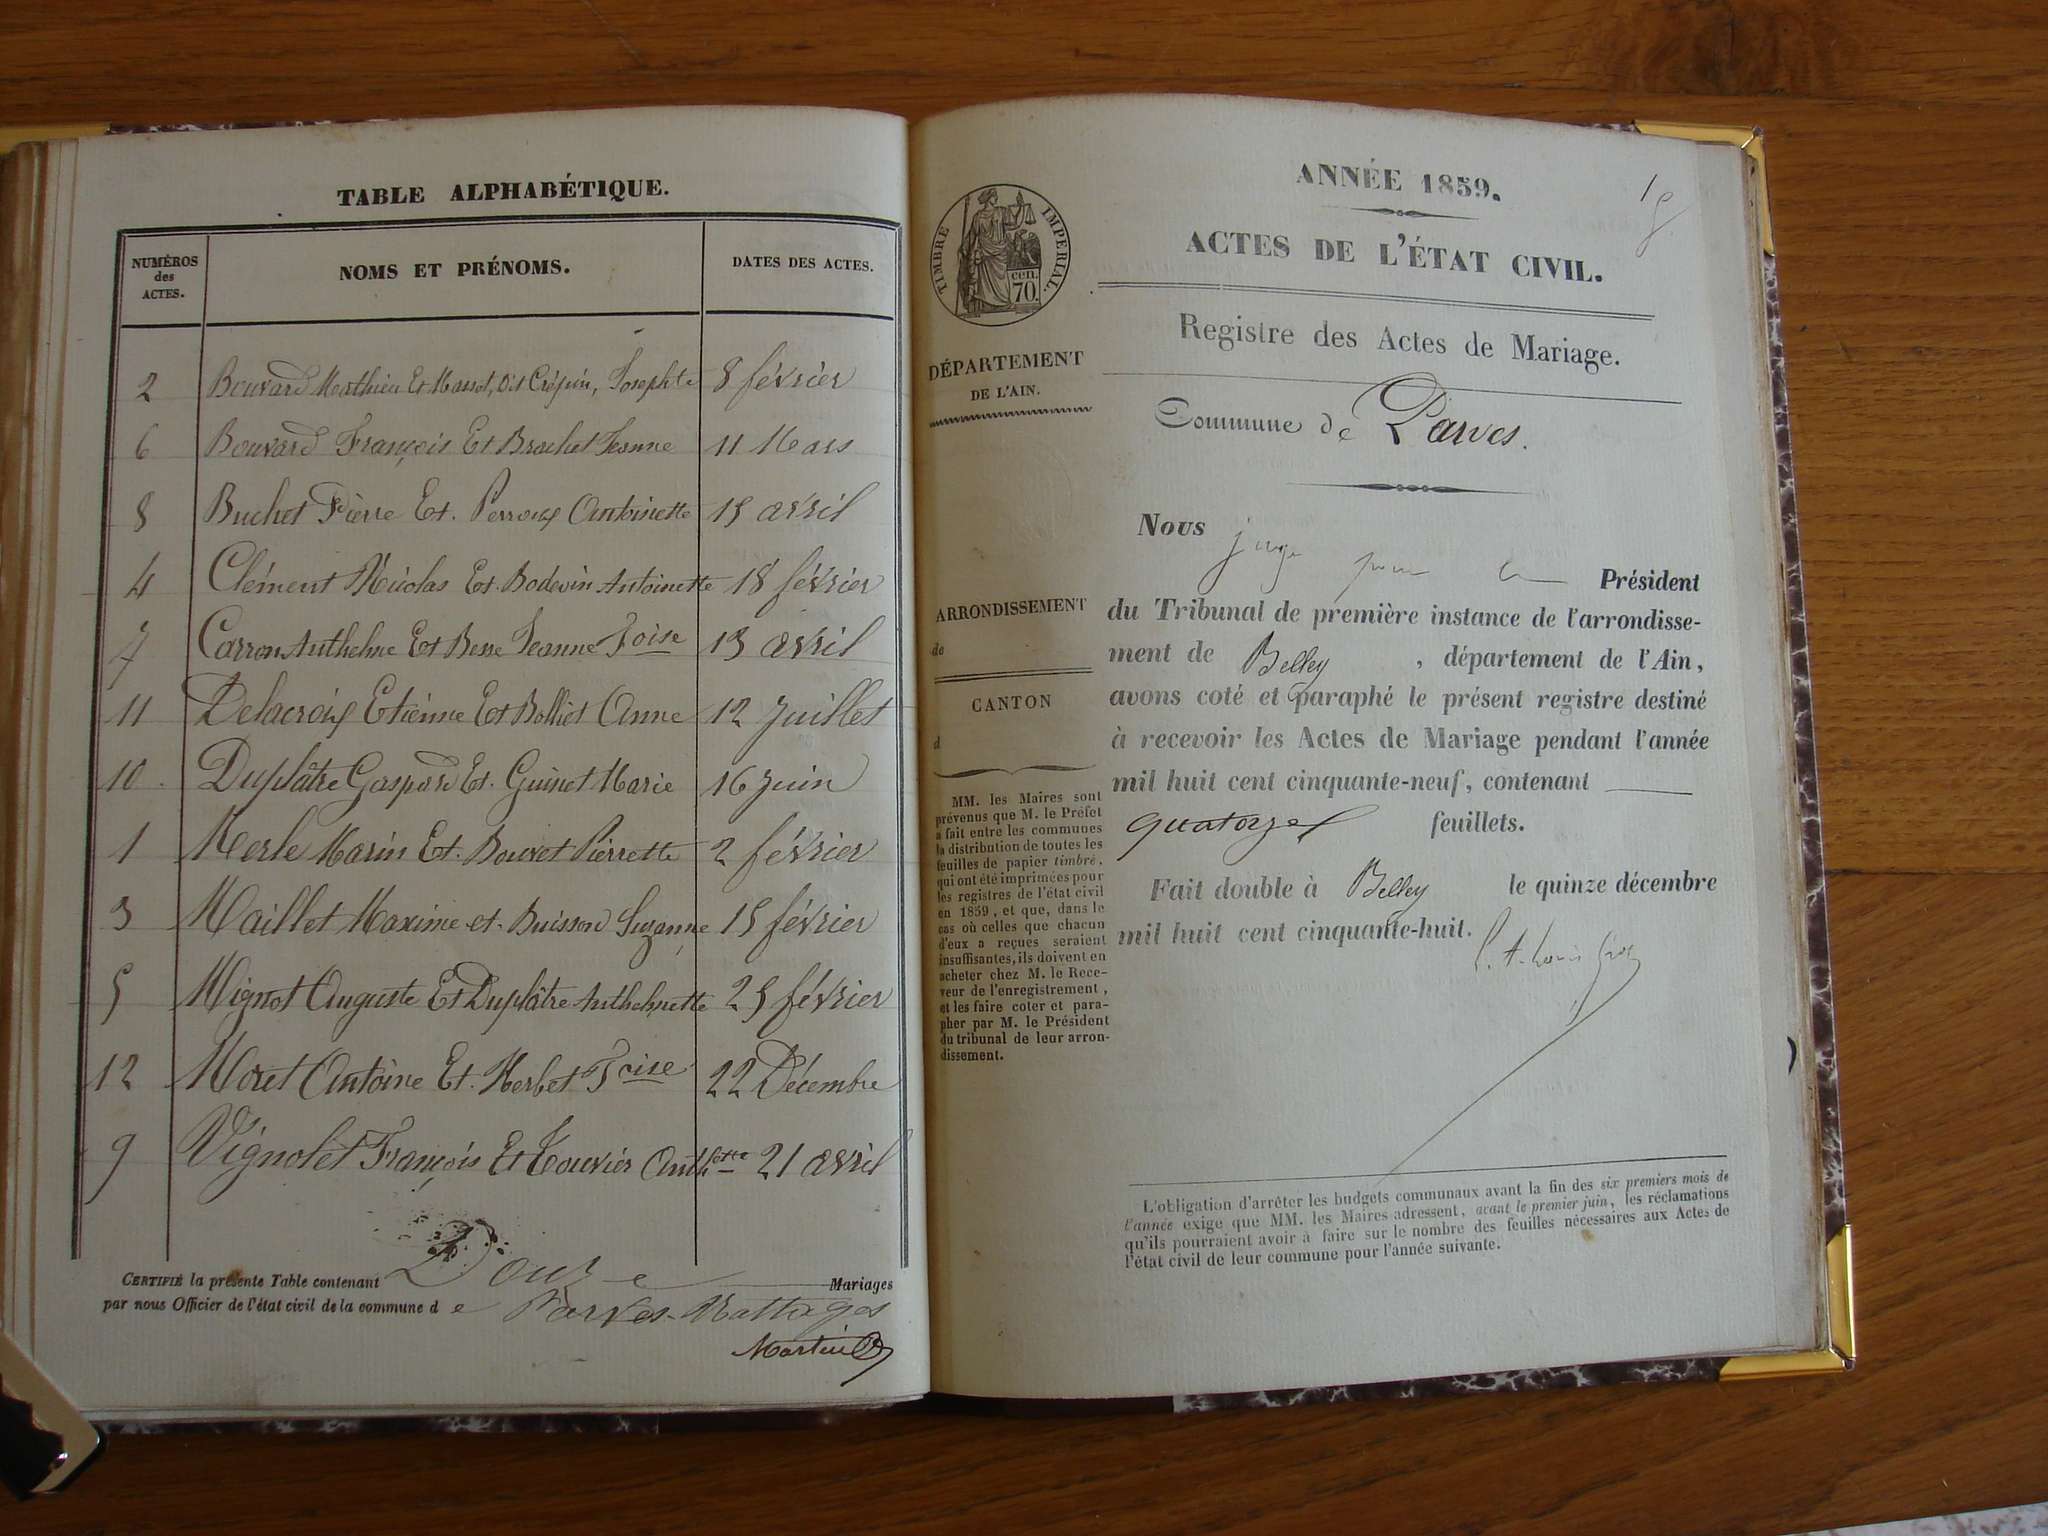 TABLE ALPHABÉTIQUE.
NUMÉROS des ACTES.
NOMS ET PRÉNOMS.
DATES DES ACTES.
2 Bouvard Mathieu Et Massot, Dit Crépin, Josephte 8 février
6 Bouvard François Et Brachet Jeanne 11 Mars
8 Buchet Pierre Et. Perroux Antoinette 15 avril
4 Clément Nicolas Et. Bodevin Antoinette 18 février
7 Carron Anthelme Et Besse Jeanne Foise 13 avril
11 Delacroix Etienne Et Bolliet Anne 12 Juillet
10 Duplâtre Gaspard Et. Guinet Marie 16 Juin
1 Merle Marin Et. Bouvet Pierrette 2 février
3 Maillet Maxime et. Buisson Suzanne 15 février
5 Mignot Auguste Et Duplâtre Anthelmette 25 février
12 Moret Antoine Et. Herbet Foise 22 Décembre
9 Vignolet François Et Touvier Anthette 21 avril
CERTIFIÉ la présente Table contenant Douze Mariages
par nous Officier de l'état civil de la commune de Parves-Nattages
Martin
ANNÉE 1859.
ACTES DE L'ÉTAT CIVIL.
TIMBRE IMPÉRIAL.
cen.
70
Registre des Actes de Mariage.
DÉPARTEMENT
DE L'AIN.
Commune de Parves.
ARRONDISSEMENT
de
CANTON
d
MM. les Maires sont
prévenus que M. le Préfet
a fait entre les communes
la distribution de toutes les
feuilles de papier timbré,
qui ont été imprimées pour
les registres de l'état civil
en 1859, et que, dans le
cas où celles que chacun
d'eux a reçues seraient
insuffisantes, ils doivent en
acheter chez M. le Rece-
veur de l'enregistrement,
et les faire coter et para-
pher par M. le Président
du tribunal de leur arron-
dissement.
Nous juge pour le Président
du Tribunal de première instance de l'arrondisse-
ment de Belley, département de l'Ain,
avons coté et paraphé le présent registre destiné
à recevoir les Actes de Mariage pendant l'année
mil huit cent cinquante-neuf, contenant
quatorze feuillets.
Fait double à Belley le quinze décembre
mil huit cent cinquante-huit.
L'obligation d'arrêter les budgets communaux avant la fin des six premiers mois de
l'année exige que MM. les Maires adressent, avant le premier juin, les réclamations
qu'ils pourraient avoir à faire sur le nombre des feuilles nécessaires aux Actes de
l'état civil de leur commune pour l'année suivante.